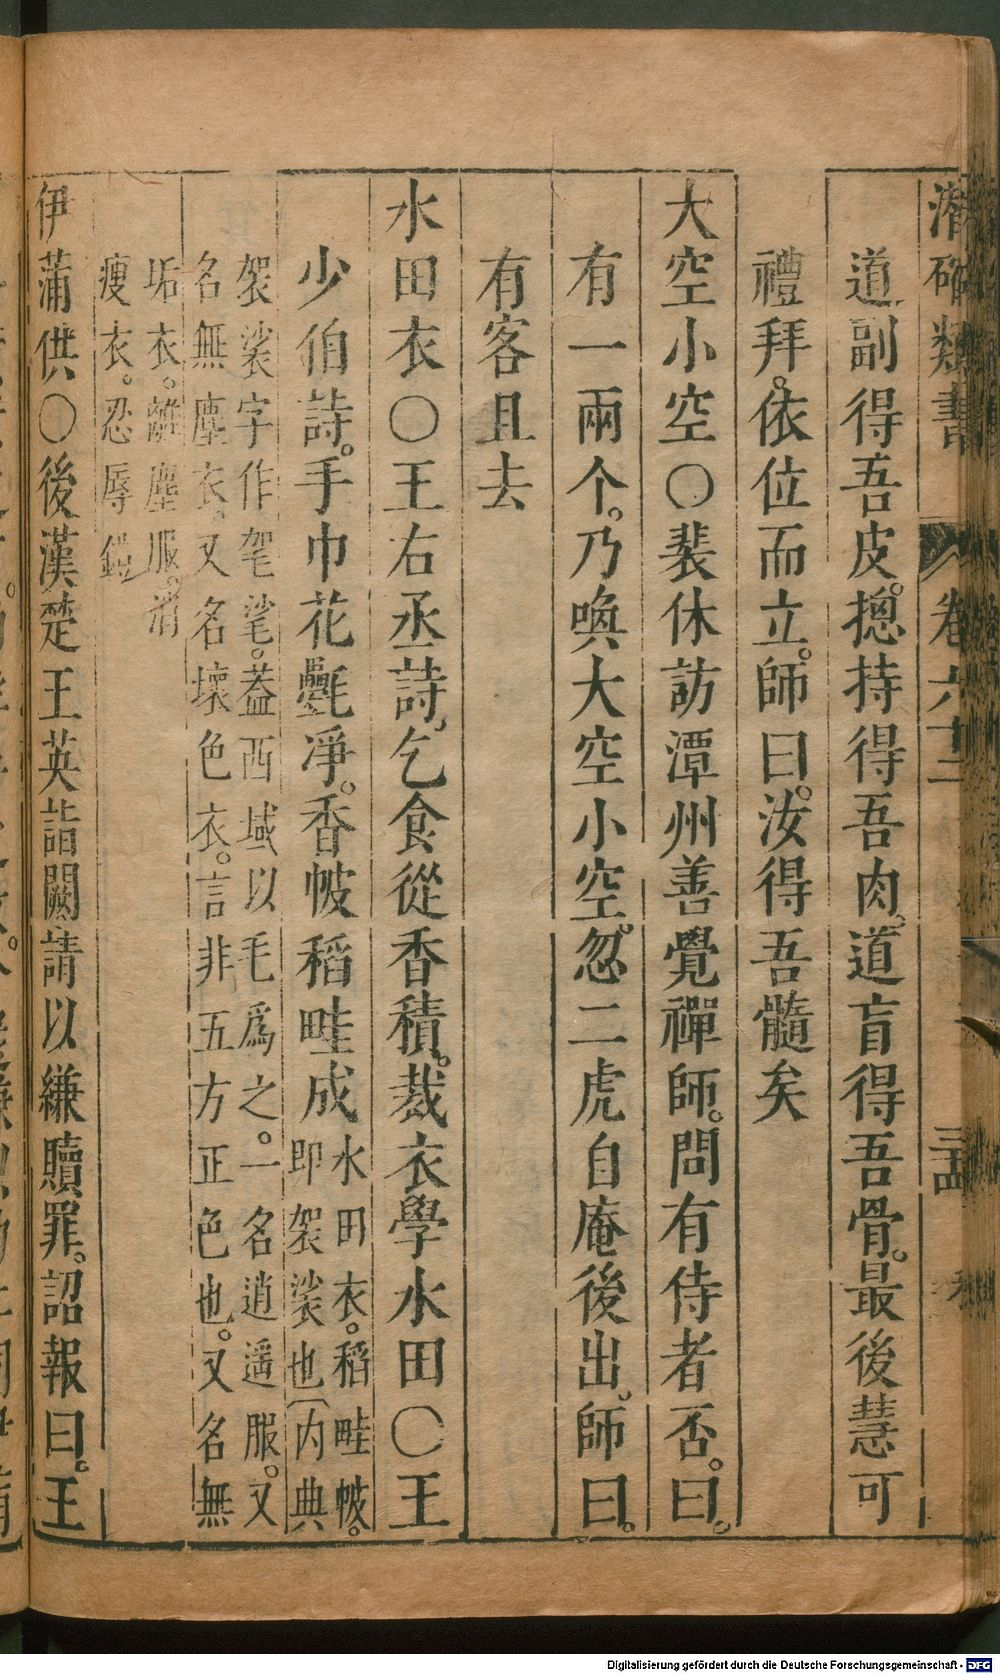 潛確類書 卷六十二
道副得吾皮。摠持得吾肉。道盲得吾骨。最後慧可
禮拜。依位而立。師曰。汝得吾髓矣
大空小空○裴休訪潭州善覺禪師。問有侍者否。曰。
有一兩个。乃喚大空小空。忽二虎自庵後出。師曰。
有客且去
水田衣○王右丞詩。乞食從香積。裁衣學水田○王
少伯詩。手巾花氎凈。香帔稻畦成
水田衣。稻畦帔。
即袈裟也(内典
袈裟字作毠㲚。蓋西域以毛爲之。一名逍遥服。又
名無塵衣。又名壞色衣。言非五方正色也。又名無
垢衣。離塵服。消
瘦衣。忍辱鎧
伊蒲供○後漢楚王英詣闕請以縑贖罪。詔報曰。王
Digitalisierung gefördert durch die Deutsche Forschungsgemeinschaft - DFG